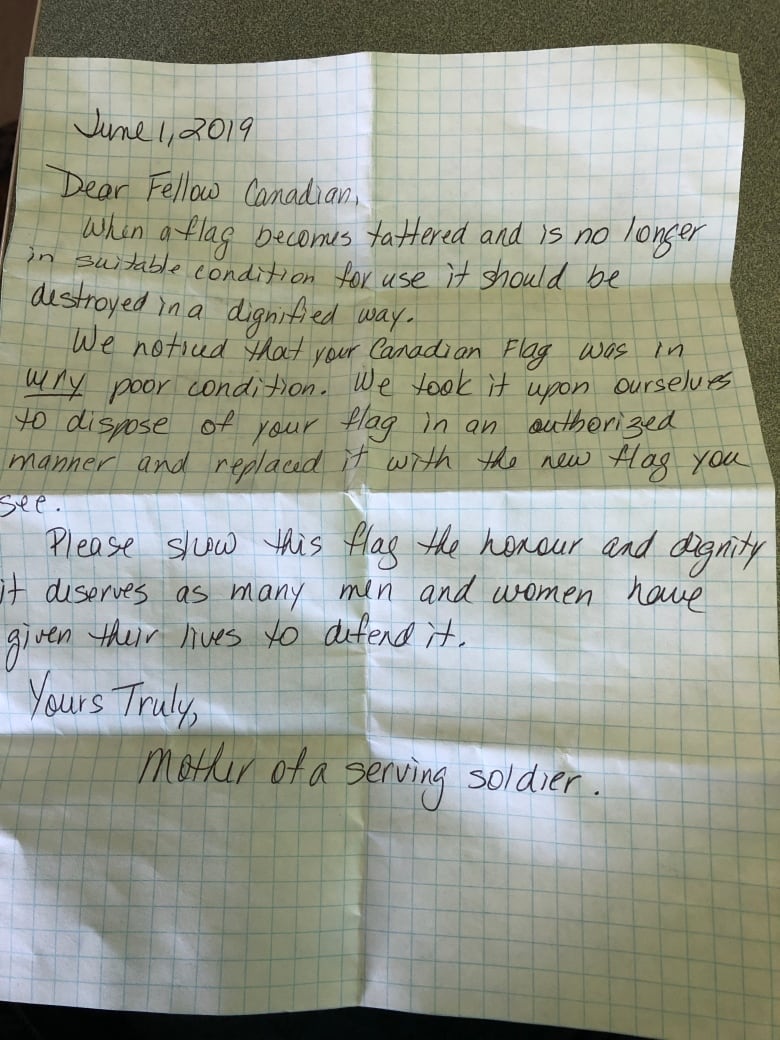 June 1, 2019
Dear Fellow Canadian,
When a flag becomes tattered and is no longer
in suitable condition for use it should be
destroyed in a dignified way.
We noticed that your Canadian Flag was in
very poor condition. We took it upon ourselves
to dispose of your flag in an authorized
manner and replaced it with the new flag you
see.
Please show this flag the honour and dignity
it deserves as many men and women have
given their lives to defend it.
Yours Truly,
Mother of a serving soldier.